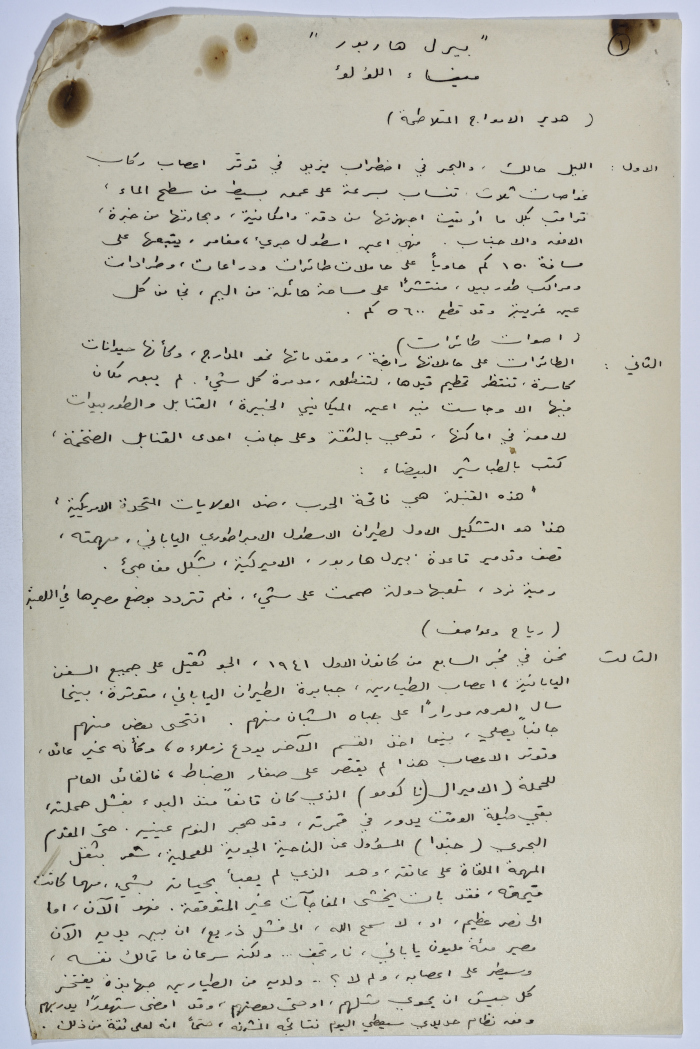 ١
" بيرل هاربور "
ميناء اللؤلؤ
( هدير الامواج المتلاطمة )
الاول : الليل حالك ، والبحر في اضطراب يزيد في توتر اعصاب ركاب
غواصات ثلاث ، تنساب بسرعة على عمق بسيط من سطح الماء ،
تراقب بكل ما أوتيت اجهزتها من دقة وامكانية ، وبحارتها من خبرة ،
الافق والاجناب . فهي اعين اسطول جريء ، مغامر ، يتبعها على
مسافة ١٥٠ كم حاوياً على حاملات طائرات ودراعات ، وطرادات
ومراكب طوربيد ، منتشراً على مساحة هائلة من اليم ، نجا من كل
عين غريبة وقد قطع ٥٦٠٠ كم .
( اصوات طائرات )
الثاني : الطائرات على حاملاتها رابضة ، ومقدماتها نحو المدارج ، وكأنها حيوانات
كاسرة ، تنتظر تحطيم قيدها ، لتنطلق ، مدمرة كل شيء . لم يبق مكان
فيها الا وجاست فيه اعين الميكانيكي الخبيرة ، القنابل والطوربيدات
لامعة في اماكنها ، توحي بالثقة وعلى جانب احدى القنابل الضخمة ،
كتب بالطباشير البيضاء :
" هذه القنبلة هي فاتحة الحرب ، ضد الولايات المتحدة الامريكية "
هذا هو التشكيل الاول لطيران الاسطول الامبراطوري الياباني ، مهمته ،
قصف وتدمير قاعدة . بيرل هاربور ، الاميركية ، بشكل مفاجئ .
رمية نرد ، تلعبها دولة صممت على شيء ، فلم تتردد بوضع مصيرها في اللعبة
( رياح وعواصف )
الثالث نحن في فجر السابع من كانون الاول ١٩٤١ ، الجو ثقيل على جميع السفن
اليابانية ، اعصاب الطيارين ، جبابرة الطيران الياباني ، متوترة ، بينما
سال العرق مدراراً على جباه الشبان منهم . انتحى بعض منهم
جانباً يصلي ، بينما اخذ القسم الآخر يودع زملاءه ، وكأنه غير عائد ،
وتوتر الاعصاب هذا لم يقتصر على صغار الضباط ، فالقائد العام
للحملة ( الاميرال ناكومو ) الذي كان قانعاً منذ البدء بفشل حملته ،
بقي طيلة الوقت يدور في قمرته ، وقد هجر النوم عينيه . حتى المقدم
البحري ( جندا ) المسؤول عن الناحية الجوية للعملية ، شعر بثقل
المهمة الملقاة على عاتقه ، وهو الذي لم يعبأ بحياته بشيء ، مهما كانت
قيمته ، فقد بات يخشى المفاجآت غير المتوقعة . فهو الآن ، اما
الى نصر عظيم ، او ، لا سمح الله ، الى فشل ذريع ، ان بين يديه الآن
مصير مئة مليون ياباني ، فارتجف .. ولكنه سرعان ما تمالك نفسه ،
وسيطر على اعصابه ، ولم لا ؟ .. ولديه من الطيارين جهابذة يفتخر
كل جيش ان يحوي مثلهم ، او حتى بعضهم ، وقد امضى شهوراً يدربهم
وفق نظام حديدي سيعطي اليوم نتائجه ، انه لعلى ثقة من ذلك .